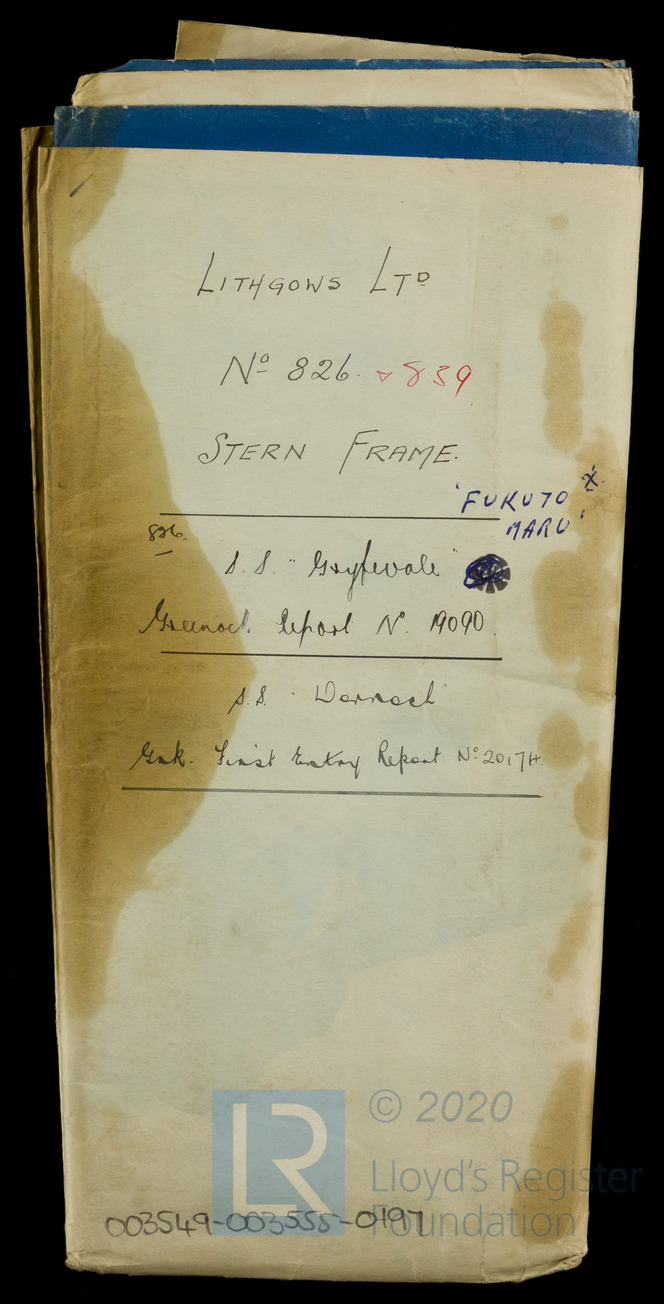 LITHGOWS LTD
No 826. & 839
STERN FRAME.
'FUKUTO X.
MARU'
826.
S.S. "Gryfevale"
Greenock Report No. 19090.
S.S. "Dornoch"
Gnk. First Entry Report No 20174.
© 2020
LR
Lloyd's Register
Foundation
003549-003555-0197